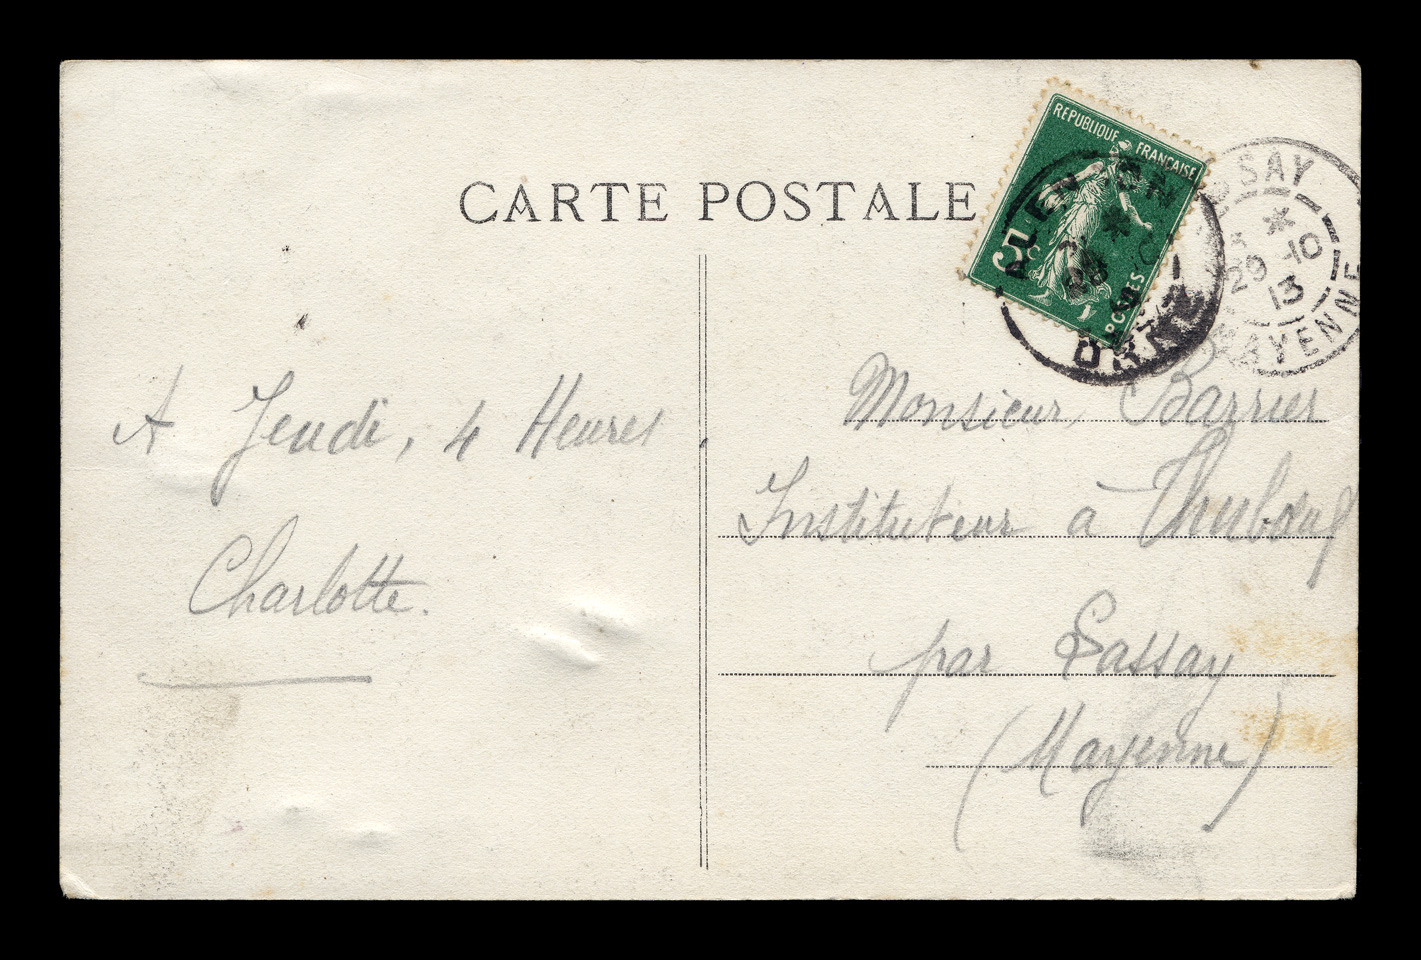 CARTE POSTALE
REPUBLIQUE FRANÇAISE
5c
POSTES
ALENÇON
ORNE
LASSAY
29-10
13
MAYENNE
A Jeudi, 4 Heures
Charlotte.
Monsieur, Barrier
Instituteur à Thuboeuf
par Lassay
(Mayenne)